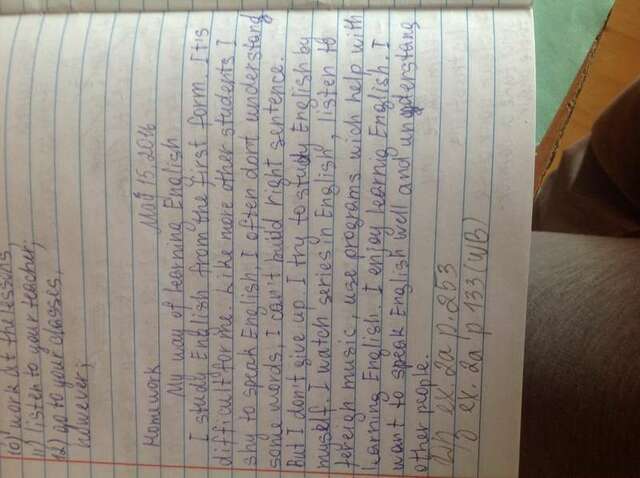 10) work at the lessons,
11) listen to your teacher;
12) go to your classes,
however;
Homework May 15.2016
My way of learning English
I study English from the first form. It is
difficult for me. Like more other students I
shy to speak English, I often don't understand
some words, I can't build right sentence.
But I don't give up. I try to study English by
myself. I watch series in English, listen to
foreign music, use programs wich help with
learning English. I enjoy learnig English. I
want to speak English well and understand
other people.
ex. 2a p. 253
ex. 2a p 133 (WB)